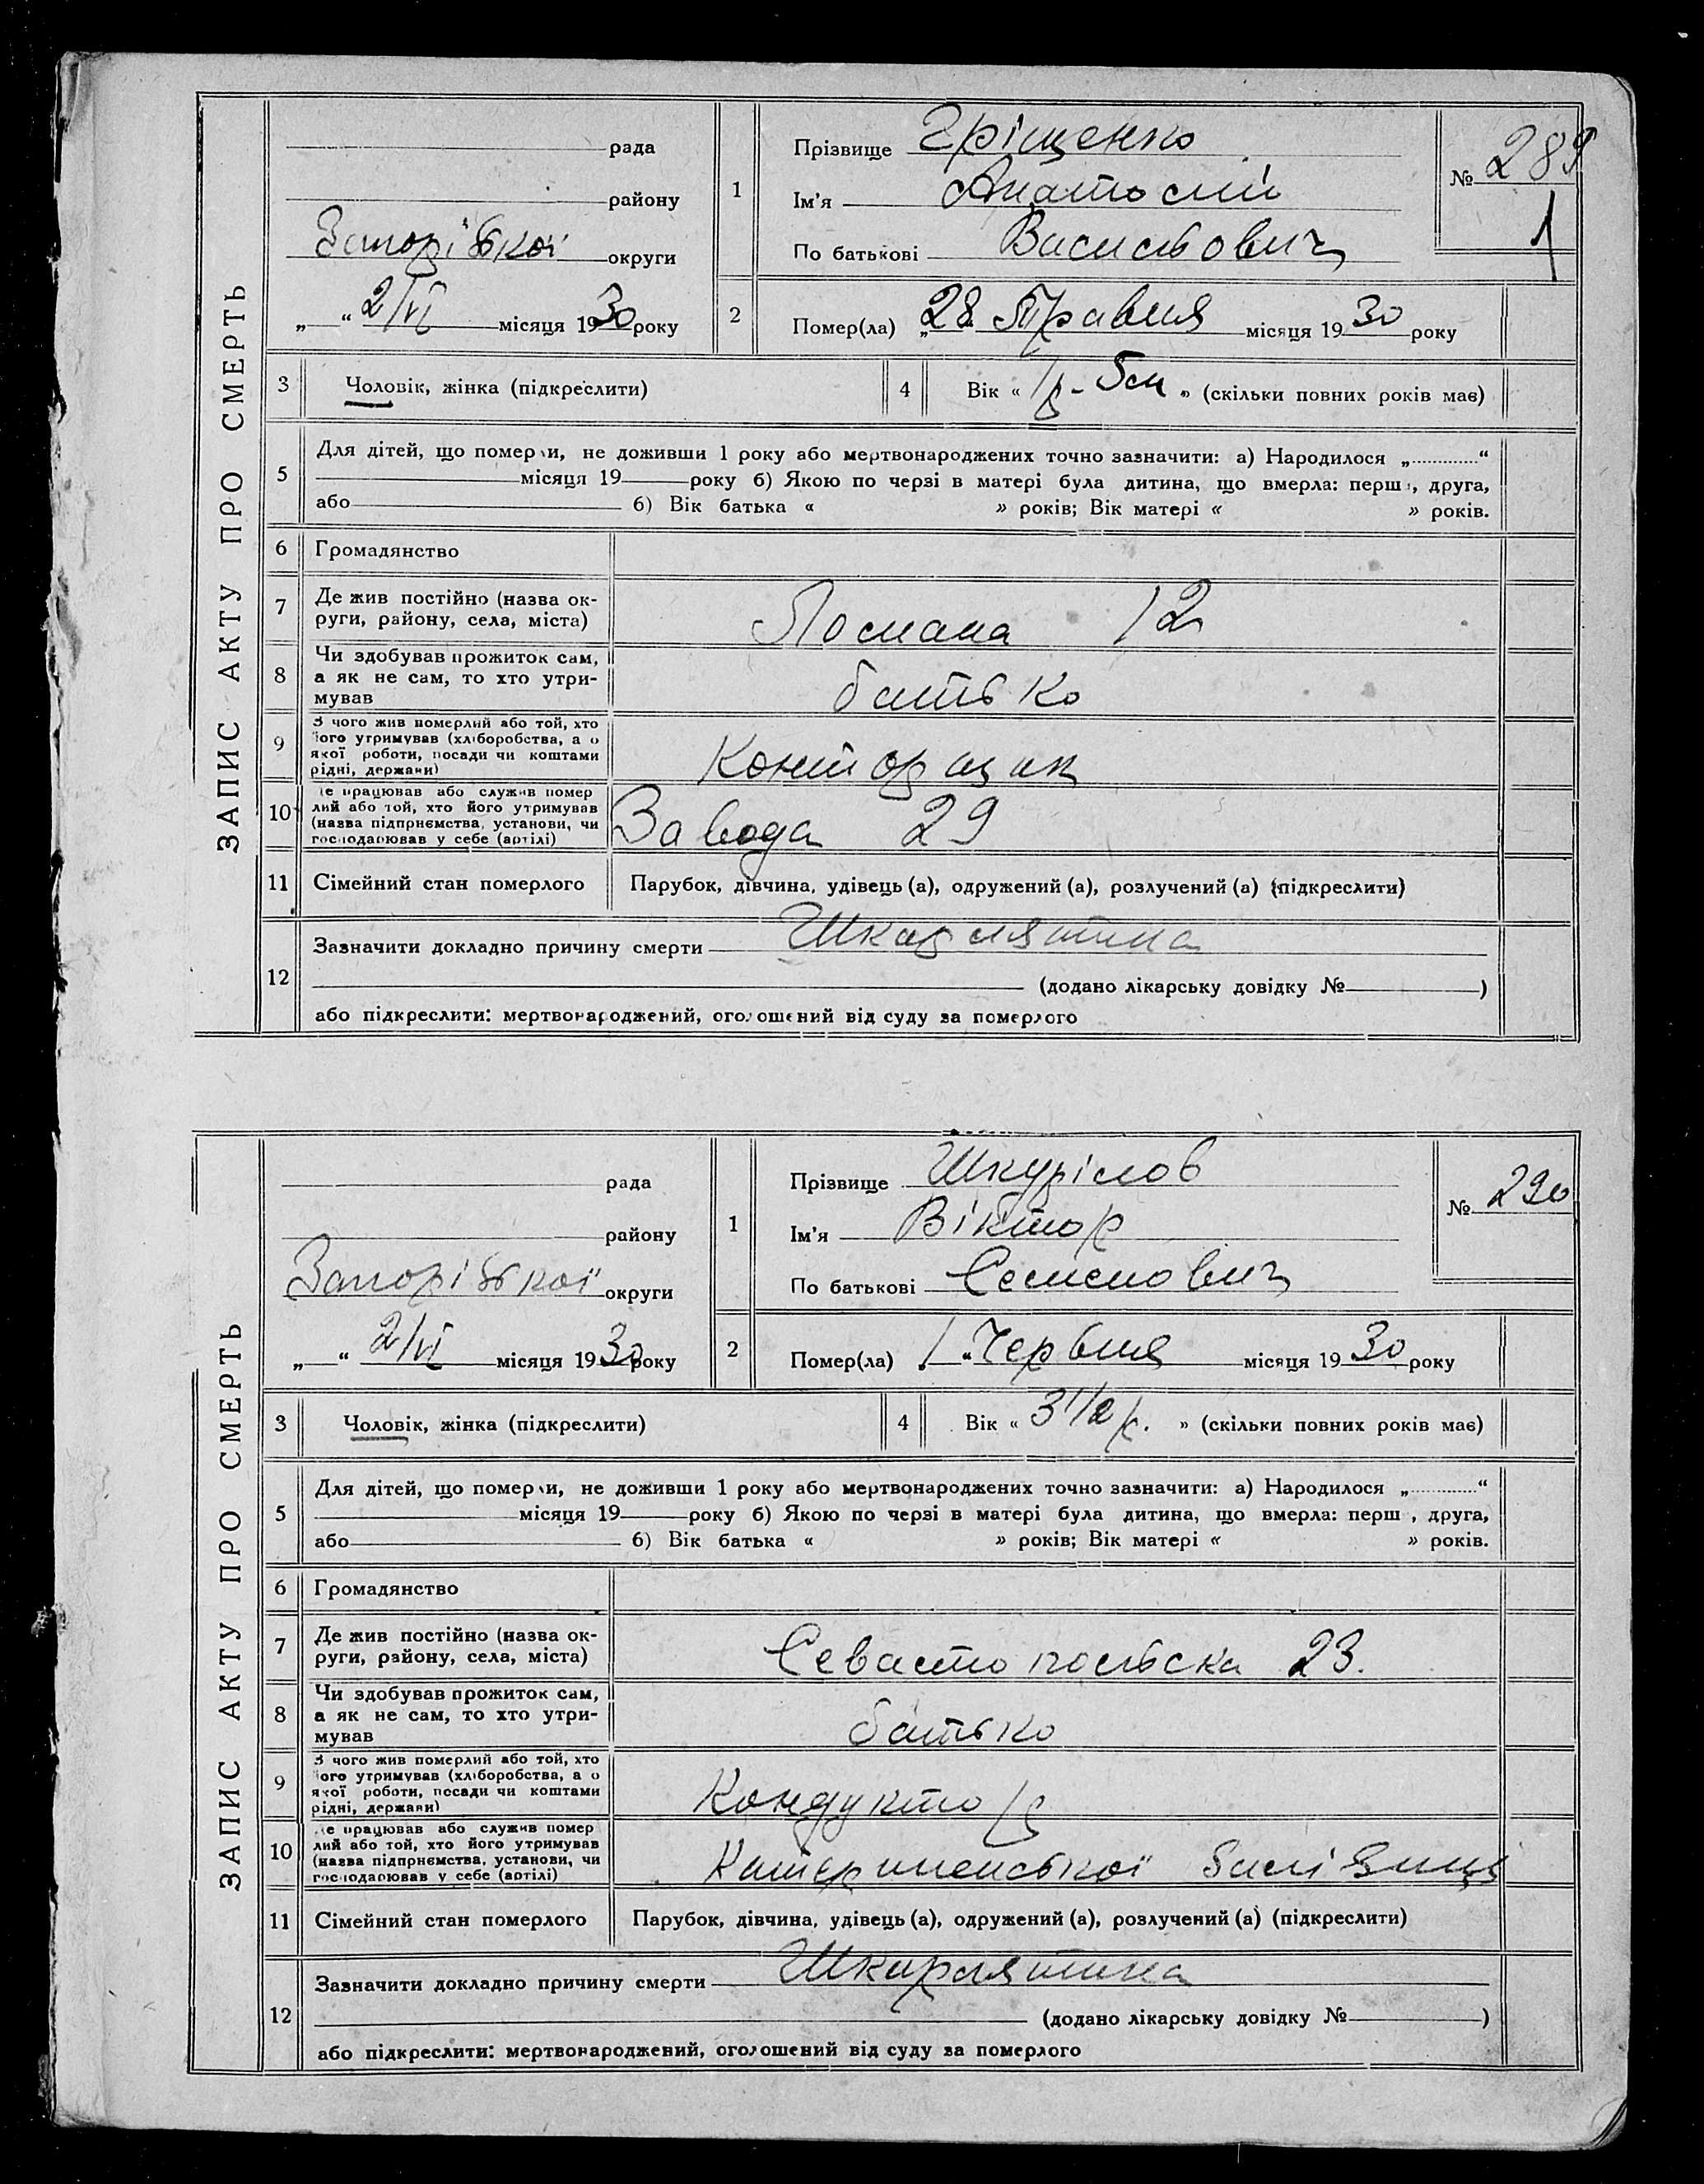 ЗАПИС АКТУ ПРО СМЕРТЬ
рада
району
Запорізької округи
„ “ 2/VI місяця 1930 року
1
Прізвище Гріщенко
Ім'я Анатолій
По батькові Васильович
№ 289
1
2
Помер(ла) „28 Травня місяця 1930 року
3 Чоловік, жінка (підкреслити)
4 Вік « 1 р - 5 м » (скільки повних років має)
5
Для дітей, що померли, не доживши 1 року або мертвонароджених точно зазначити: а) Народилося „ “
місяця 19 року б) Якою по черзі в матері була дитина, що вмерла: перша, друга,
або б) Вік батька « » років; Вік матері « » років.
6 Громадянство
7
Де жив постійно (назва ок-
руги, району, села, міста)
12
8
Чи здобував прожиток сам,
а як не сам, то хто утри-
мував
батько
9
З чого жив померлий або той, хто
його утримував (хліборобства, а о
якої роботи, посади чи коштами
рідні, держави)
Конторщик
10
Де працював або служив помер
лий або той, хто його утримував
(назва підприємства, установи, чи
господарював у себе (артілі)
Завода 29
11 Сімейний стан померлого
Парубок, дівчина, удівець (а), одружений (а), розлучений (а) (підкреслити)
12
Зазначити докладно причину смерти Шкарлятина
(додано лікарську довідку № )
або підкреслити: мертвонароджений, оголошений від суду за померлого
ЗАПИС АКТУ ПРО СМЕРТЬ
рада
району
Запорізької округи
„ “ 2/VI місяця 1930 року
1
Прізвище Шкурілов
Ім'я Віктор
По батькові Семенович
№ 290
2
Помер(ла) 1 “ Червня місяця 1930 року
3 Чоловік, жінка (підкреслити)
4 Вік « 3 1/2 р. » (скільки повних років має)
5
Для дітей, що померли, не доживши 1 року або мертвонароджених точно зазначити: а) Народилося „ “
місяця 19 року б) Якою по черзі в матері була дитина, що вмерла: перш , друга,
або б) Вік батька « » років; Вік матері « » років.
6 Громадянство
7
Де жив постійно (назва ок-
руги, району, села, міста)
Севастопольска 23.
8
Чи здобував прожиток сам,
а як не сам, то хто утри-
мував
батько
9
З чого жив померлий або той, хто
його утримував (хліборобства, а о
якої роботи, посади чи коштами
рідні, держави)
Кондуктор
10
Де працював або служив помер
лий або той, хто його утримував
(назва підприємства, установи, чи
господарював у себе (артілі)
Катерининської
11 Сімейний стан померлого
Парубок, дівчина, удівець (а), одружений (а), розлучений (а) (підкреслити)
12
Зазначити докладно причину смерти Шкарлятина
(додано лікарську довідку № )
або підкреслити: мертвонароджений, оголошений від суду за померлого